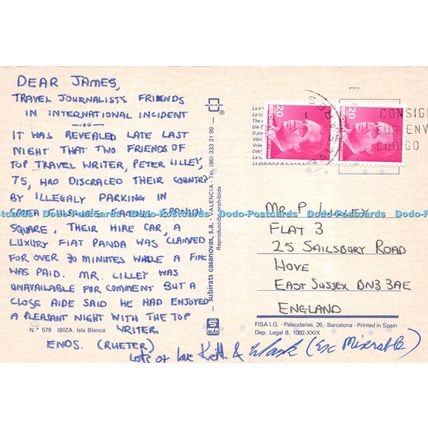 DEAR JAMES,
TRAVEL JOURNALISTS FRIENDS
IN INTERNATIONAL INCIDENT
IT WAS REVEALED LATE LAST
NIGHT THAT TWO FRIENDS OF
TOP TRAVEL WRITER, PETER LILLEY,
75, HAD DISGRACED THEIR COUNTRY
BY ILLEGALY PARKING IN
SPANISH
SQUARE, THEIR HIRE CAR, A
LUXURY FIAT PANDA WAS CLAMPED
FOR OVER 30 MINUTES WHILE A FINE
WAS PAID. MR. LILLEY WAS
UNAVAILABLE FOR COMMENT BUT A
CLOSE AIDE SAID HE HAD ENJOYED
A PLEASANT NIGHT WITH THE TOP
WRITER.
ENDS. (RUETER)
Lots of love Keith &
N.º 579 IBIZA. Isla Blanca
subirats casanovas, s.a. - VALENCIA - Tel. (96) 333 31 99
Reproducción prohibida
20
España
20
España
CONSIG
SUS ENV
CODIGO
MR. P. LILLEY
FLAT 3
25 SAILSBURY ROAD
HOVE
EAST SUSSEX BN3 3AE
ENGLAND
FISA I.G. - Palaudarias, 26 - Barcelona - Printed in Spain
Dep. Legal B. 1082-XXIX
Dodo-Postcards Dodo-Postcards Dodo-Postcards Dodo-Postcards